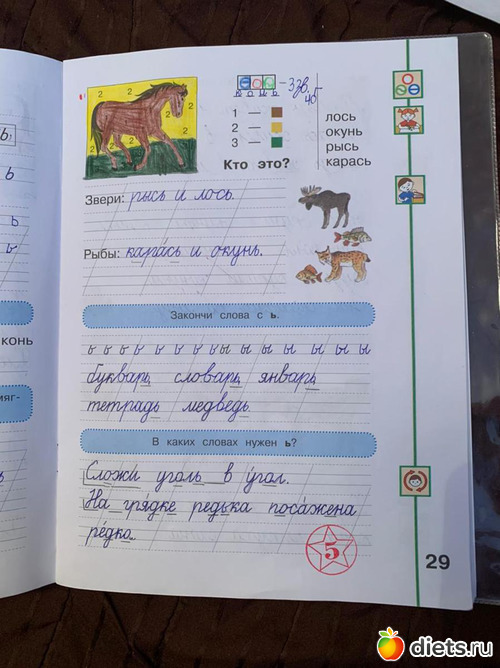 ь
ь
ь
ь
конь
мяг-
2 2 2 2 2
К О Н Ь
– 3 зв, 4б
1 —
2 —
3 —
Кто это?
лось
окунь
рысь
карась
Звери: рысь и лось.
Рыбы: карась и окунь.
Закончи слова с ь.
ь ь ь ь ь ь ь ы ы ы ы ы ы ы ы
букварь словарь январь
тетрадь медведь
В каких словах нужен ь?
Сложи уголь в угол.
На грядке редька посажена
редко.
5
29
diets.ru